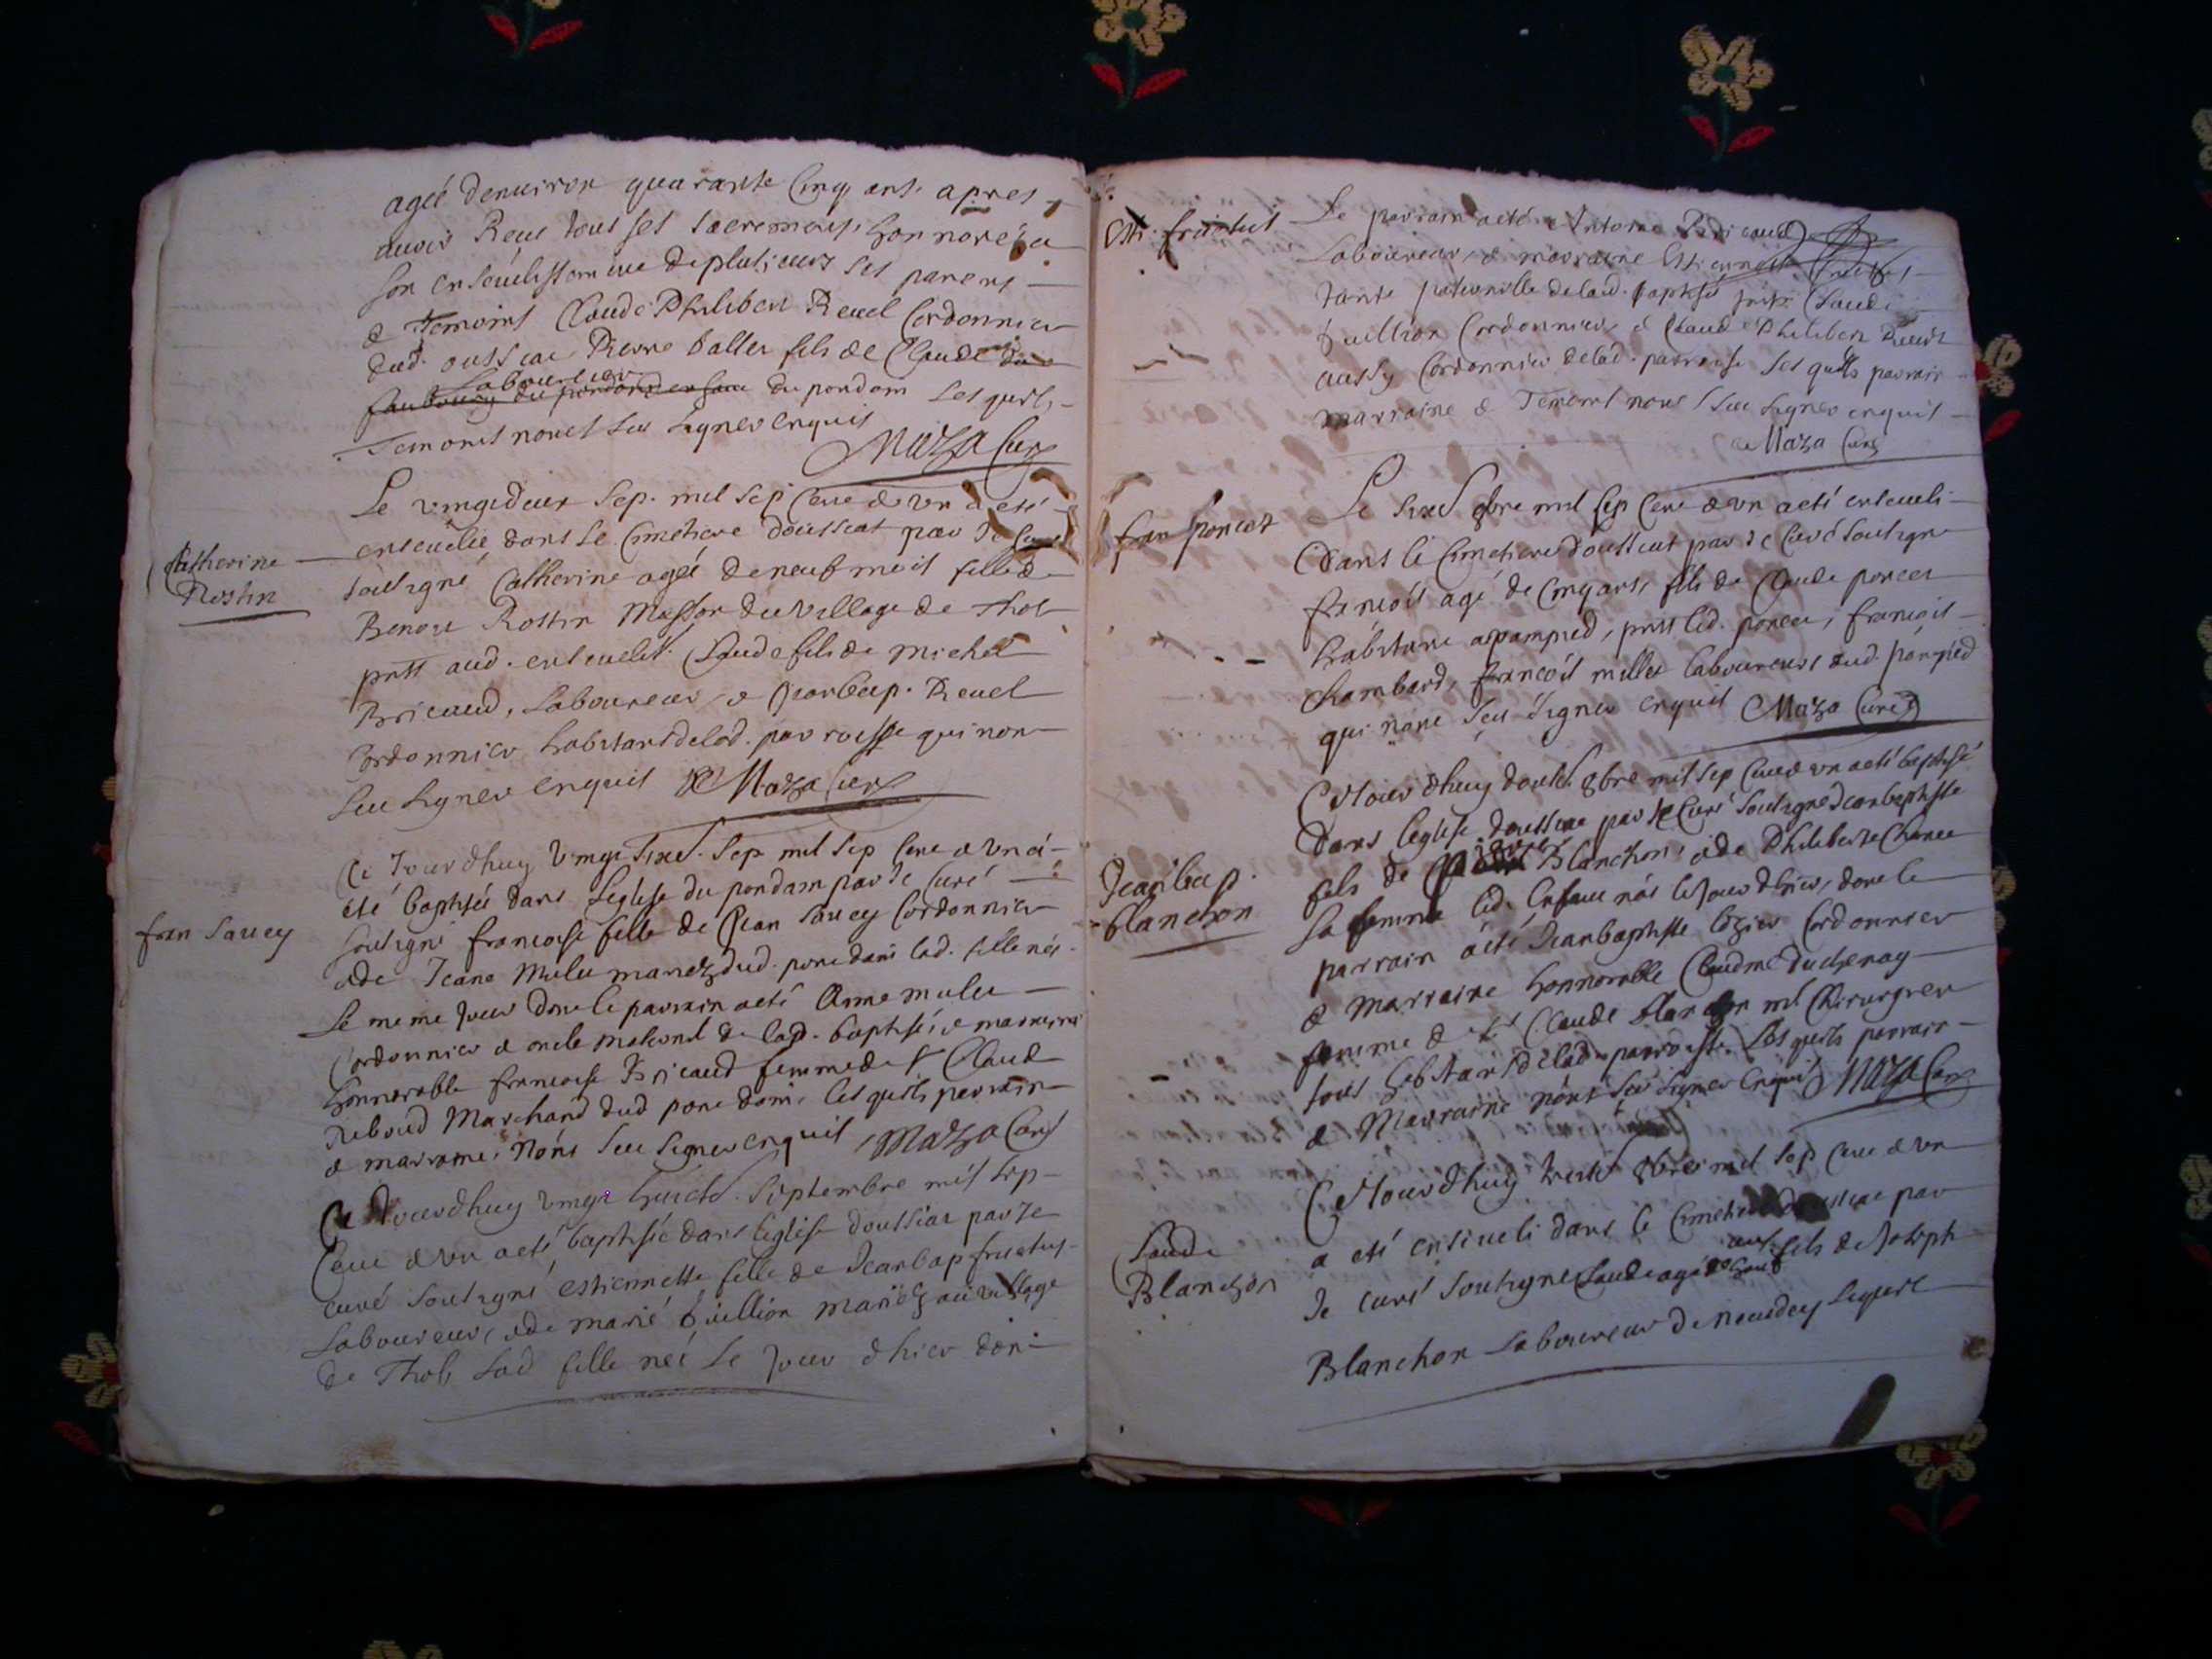 agéé denuiron quarante Cinq ans apres
auoir Reçu tous ses sacremens, honnoré a
son enseuelissem ene de plusieurs ses parens
& Temoins Claude Philibert Reuel Cordonnier
dud. oussiat Pierre ballet fils de Claude
Laboureur
faubourg du pondom du pondom Les quels
Temoins nonet seu signer enquis
Maza Curé
Catherine
Rostin
Le vingt deux sep. mil sep Cene & vn a eté
enseuelie dans le Cimetiere doussiat par Je Curé
soulsigné Catherine agéé de neuf mois fille de
Benoit Rostin Masson du village de Thol
pnts aud. enseuelis. Claude fils de michel
Bricaud, Laboureur, & Jeanbap. Reuel
Cordonnier habitans delad. parroisse qui non
seu signer enquis Maza Curé
fran Saucy
Ce Jourdhuy vingt sixe. sep mil sep Cene & vn a
eté baptisée dans Leglise du pondain par Je Curé
soulsigné francoise fille de Jean Saucy Cordonnier
& de Jeane Mulu mariez dud. pone dain lad. fille née
Le meme Jour done le parrain a eté Anne mulu
Cordonnier & oncle maternel de lad. baptisée, & marraine
honnorable francoise Bricaud femme de Sr Claud
Reboud Marchand dud pone dain, les quels parrain
& marraine, nons seu signer enquis, Maza Curé
Ce Jourdhuy vingt huicte. septembre mil sep
Cene & vn a eté baptisée dans leglise doussiat par Je
curé soulsigné estiennette fille de Jeanbap fructus
Laboureur, & de marie Guillion mariez au village
de Thol, Lad fille née Le Jour dhier don
Esti. fructus
Le parrain a eté Antoine Bricaud
Laboureur, & marraine Estiennette fructus
tante paternelle de lad. baptisée pnts. Claude
Guillion Cordonnier, & Claude Philibert Reuel
aussy Cordonnier de lad. parroisse les quels parrain
marraine & Temoins nons seu signer enquis
Maza Curé
fran poncet
Le sixe 8bre mil sep Cene & vn a eté enseueli
dans le Cimetiere doussiat par Je Curé soulsigne
francois agé de Cinq ans, fils de Claude poncet
habitant a pampied, pnts led. poncet, francois
Chambard, francois millet laboureurs dud. pampied
qui none seu signer enquis Maza Curé
Jeanbap.
blanchon
Ce Jourdhuy douze 8bre mil sep Cene & vn a eté baptisé
dans leglise doussiat par Je Curé soulsigné Jeanbaptiste
fils de Blanchon, & de Philiberte Chanee
sa femme led. Enfant nés le Jour dhier, done le
parrain a eté Jeanbaptiste lozier Cordonnier
& marraine honnorable Claudine duchenay
femme de Sr Claude blanchon me Chirurgien
tous habitans de lad. parroisse. Les quels parrain
& Marraine n'ont seu signer Enquis Maza Curé
Claude
Blanchon
Ce Jourdhuy treize 8bre mil sep Cene & vn
a eté enseueli dans le Cimetiere doussiat par
Je curé soulsigné Claude agé de huit ans fils de Joseph
Blanchon Laboureur de neuidey Lequel